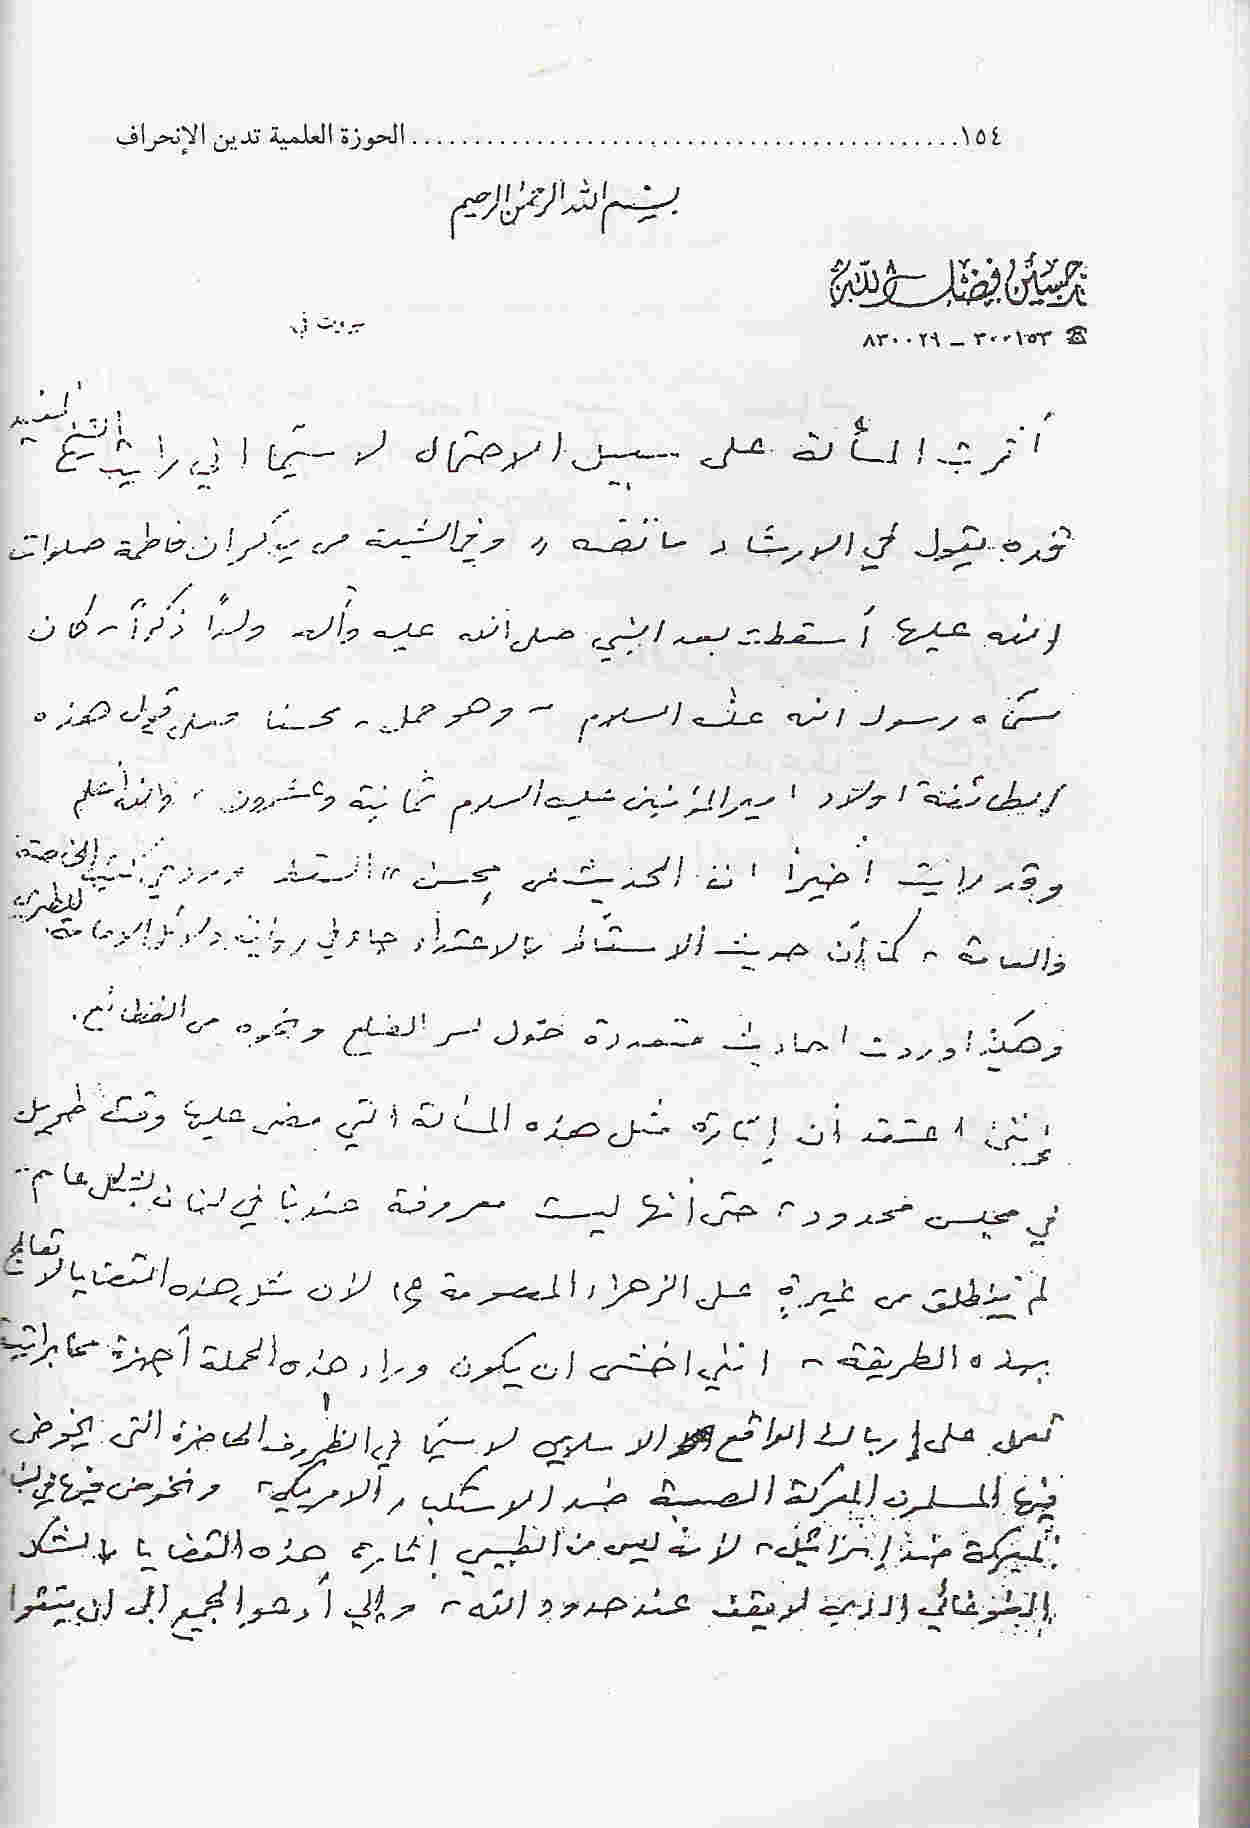 ١٥٤ ............................................ الحوزة العلمية تدين الإنحراف
بسم الله الرحمن الرحيم
حسين فضل الله
بيروت في
☎ ٣٠٠١٥٣ – ٨٣٠٠٢٩
أثرت المسألة على سبيل الاحتمال لا سيّما اني رايت الشيخ المفيد
قده يقول في الارشاد ما نصّه « وفي الشيعة من يذكر ان فاطمة صلوات
الله عليها أسقطت بعد النبي صلى الله عليه وآله ولدًا ذكرًا، كان
سمّاه رسول الله عليه السلام - وهو حمل، محسنا فعلى قول هذه
الطائفة اولاد امير المؤمنين عليه السلام ثمانية وعشرون، والله أعلم
وقد رايت أخيرا ان الحديث عن محسن « السقط » مروي كتب الخاصة
والعامة، كما أن حديث الاسقاط بالاعتداء جاء في رواية دلائل الامامة للطبري
وهكذا وردت احاديث متعددة حول كسر الضلع ونحوه من الفظائع.
إنني اعتقد أن إثارة مثل هذه المسألة التي مضى عليها وقت طويل
في مجلس محدود، حتى أنها ليست معروفة عندنا في لبنان بشكل عام ..
لم ينطلق من غيرة على الزهراء المعصومة (ع) لأن مثل هذه القضايا لا تعالج
بهذه الطريقة، انني اخشى ان يكون وراء هذه الحملة أجهزة مخابراتية
تعمل على إرباك الواقع الاسلامي لا سيّما في الظروف الحاضرة التي يخوض
فيها المسلمون المعركة الصعبة ضد الاستكبار الامريكي، ونخوض فيها في
المعركة ضد إسرائيل، لانه ليس من الطبيعي إثارة هذه القضايا بالشكل
الغوغائي الذي لا يقف عند حدود الله، وإني أدعوا الجميع الى ان يتقوا